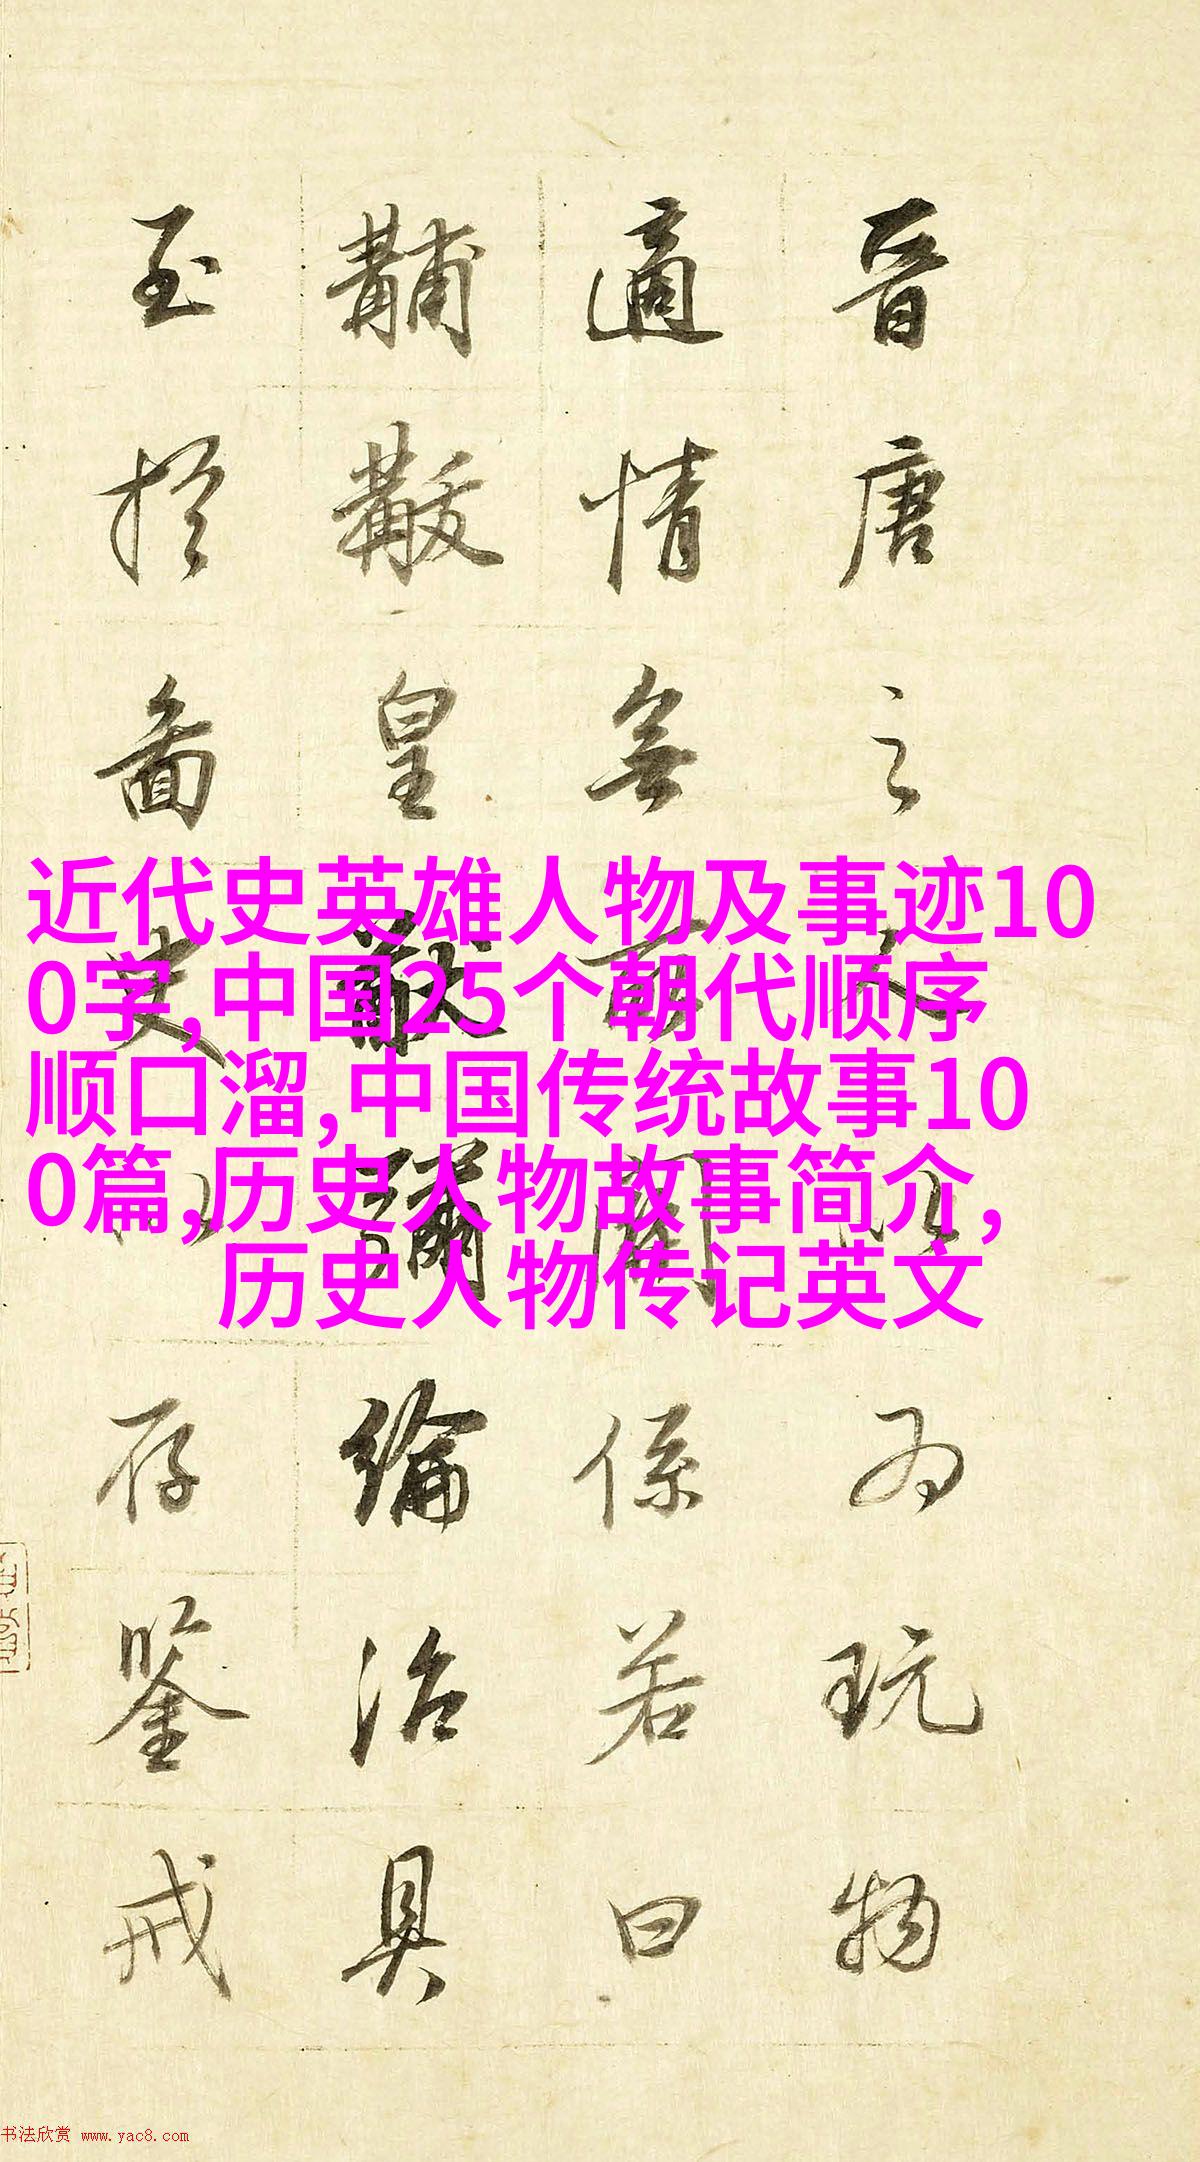 晉唐之以為玩物
適情無關係若曰
黼黻皇猷彌綸治具
至於圖史以存鑒戒
近代史英雄人物及事迹10
0字,中国25个朝代顺序
顺口溜,中国传统故事10
0篇,历史人物故事简介,
历史人物传记英文
书法欣赏 www.yac8.com